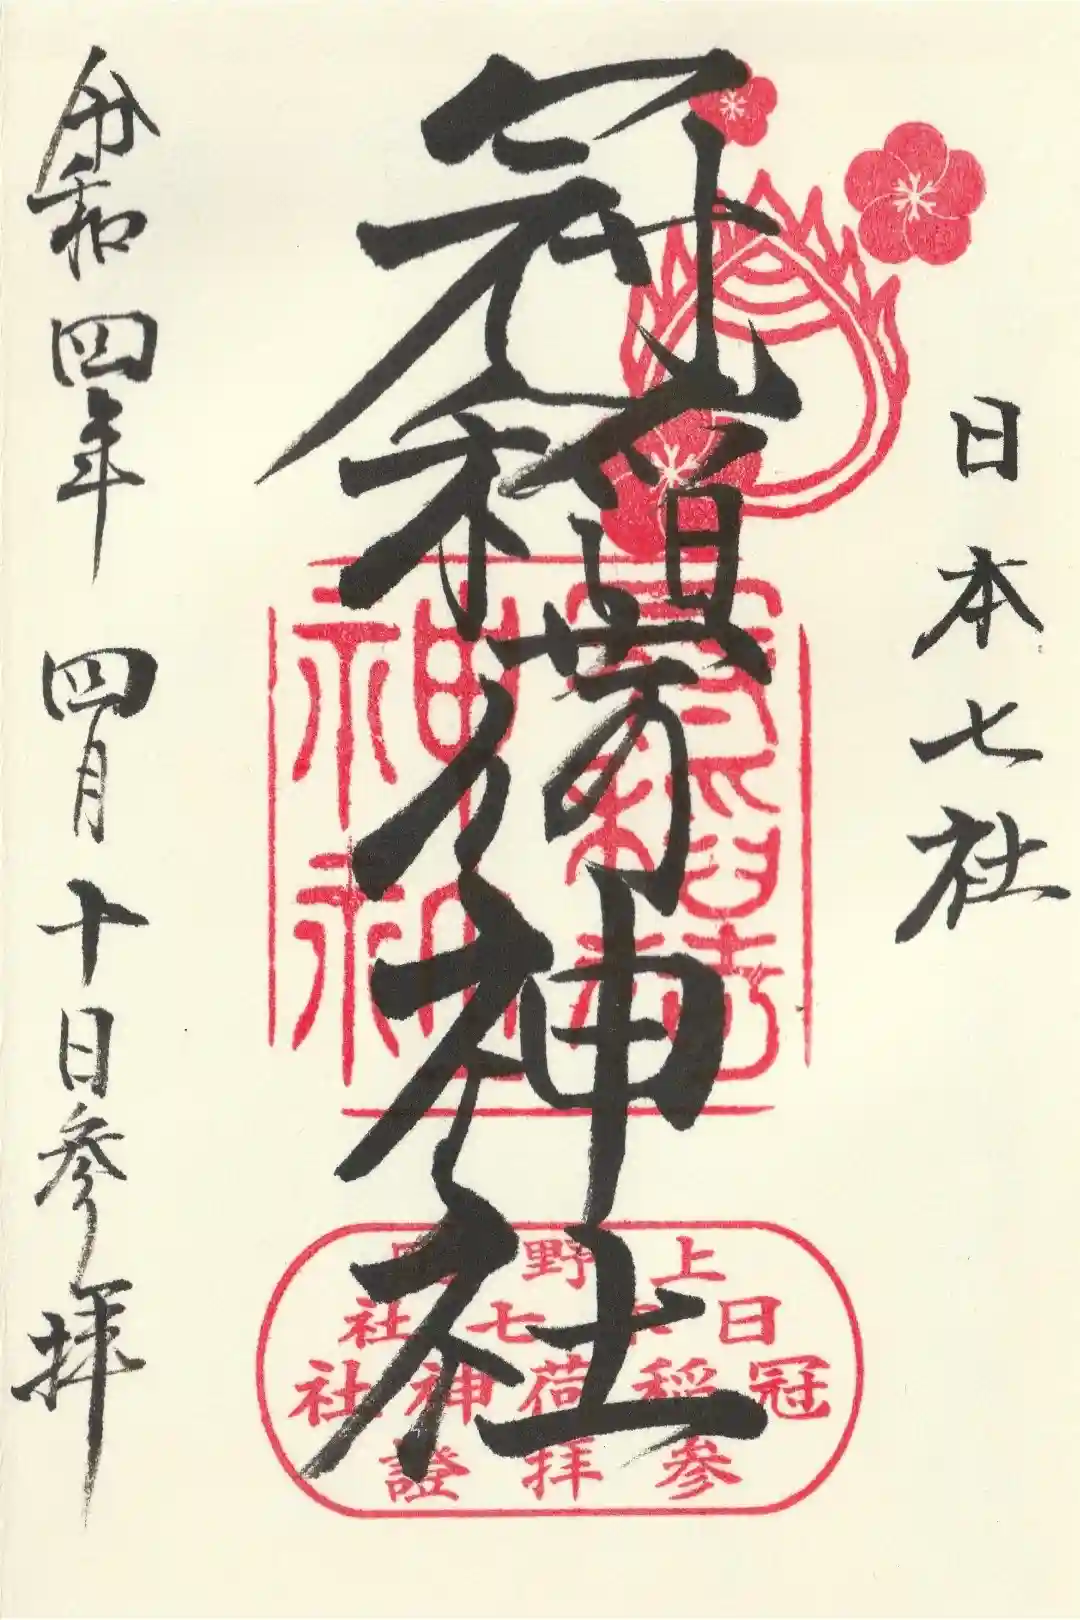 日本七社
冠稲荷神社
令和四年 四月十日参拝
冠稲荷
神社
上野國
日本七社
冠稲荷神社
参拝證